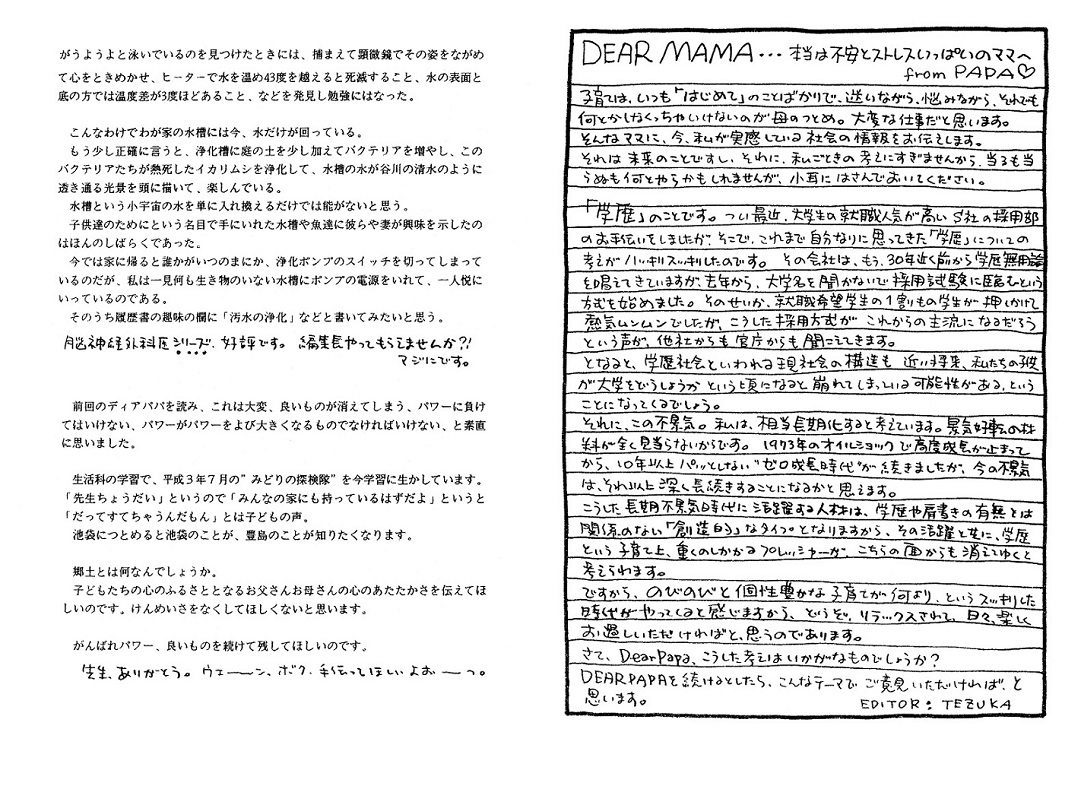 がうようよと泳いでいるのを見つけたときには、捕まえて顕微鏡でその姿をながめ
て心をときめかせ、ヒーターで水を温め43度を越えると死滅すること、水の表面と
底の方では温度差が3度ほどあること、などを発見し勉強にはなった。
こんなわけでわが家の水槽には今、水だけが回っている。
もう少し正確に言うと、浄化槽に庭の土を少し加えてバクテリアを増やし、この
バクテリアたちが熱死したイカリムシを浄化して、水槽の水が谷川の清水のように
透き通る光景を頭に描いて、楽しんでいる。
水槽という小宇宙の水を単に入れ換えるだけでは能がないと思う。
子供達のためにという名目で手にいれた水槽や魚達に彼らや妻が興味を示したの
はほんのしばらくであった。
今では家に帰ると誰かがいつのまにか、浄化ポンプのスイッチを切ってしまって
いるのだが、私は一見何も生き物のいない水槽にポンプの電源をいれて、一人悦に
いっているのである。
そのうち履歴書の趣味の欄に「汚水の浄化」などと書いてみたいと思う。
脳神経外科医シリーズ、好評です。編集長やってもらえませんか?!
マジにです。
前回のディアパパを読み、これは大変、良いものが消えてしまう、パワーに負け
てはいけない、パワーがパワーをよび大きくなるものでなければいけない、と素直
に思いました。
生活科の学習で、平成3年7月の"みどりの探検隊"を今学習に生かしています。
「先生ちょうだい」というので「みんなの家にも持っているはずだよ」というと
「だってすてちゃうんだもん」とは子どもの声。
池袋につとめると池袋のことが、豊島のことが知りたくなります。
郷土とは何なんでしょうか。
子どもたちの心のふるさととなるお父さんお母さんの心のあたたかさを伝えてほ
しいのです。けんめいさをなくしてほしくないと思います。
がんばれパワー、良いものを続けて残してほしいのです。
先生、ありがとう。ウエーーン、ボク、手伝ってほしいよおーーっ。
DEAR MAMA… 本当は不安とストレスいっぱいのママへ
from PAPA♡
子育ては、いつも「はじめて」のことばかりで、迷いながら、悩みながら、それでも
何とかしなくっちゃいけないのが母のつとめ。大変な仕事だと思います。
そんなママに、今、私が実感している社会の情報をお伝えします。
それは未来のことですし、それに、私ごときの考えにすぎませんから、当るも当
らぬも何とやらかもしれませんが、小耳にはさんでおいてください。
「学歴」のことです。つい最近、大学生の就職人気が高いS社の採用部
のお手伝いをしましたが、そこで、これまで自分なりに思ってきた「学歴」についての
考えがハッキリスッキリしたのです。その会社は、もう、30年近く前から学歴無用論
を唱えてきていますが、去年から、大学名を聞かないで採用試験に臨むという
方式を始めました。そのせいか、就職希望学生の1割もの学生が押しかけて
熱気ムンムンでしたが、こうした採用方式がこれからの主流になるだろう
という声が、他社からも官庁からも聞こえてきます。
となると、学歴社会といわれる現社会の構造も近い将来、私たちの子供
が大学をどうしようかという頃になると崩れてしまっている可能性がある、という
ことになってくるでしょう。
それに、この不景気。私は、相当長期化すると考えています。景気好転の材
料が全く見当らないからです。1973年のオイルショックで高度成長が止まって
から、10年以上パッとしない"ゼロ成長時代"が続きましたが、今の不景気
は、それ以上深く長続きすることになるかと思えます。
こうした長期不景気時代に活躍する人材は、学歴や肩書きの有無とは
関係のない「創造的」なタイプとなりますから、その活躍と共に、学歴
という子育て上、重くのしかかるプレッシャーが、こちらの面からも消えてゆくと
考えられます。
ですから、のびのびと個性豊かな子育てが何より、というスッキリした
時代がやってくると感じますから、どうぞ、リラックスされて、日々、楽しく
お過しいただければと、思うのであります。
さて、DearPapa、こうした考えはいかがなものでしょうか?
DEAR PAPAを続けるとしたら、こんなテーマでご意見いただければ、と
思います。
EDITOR: TEZUKA